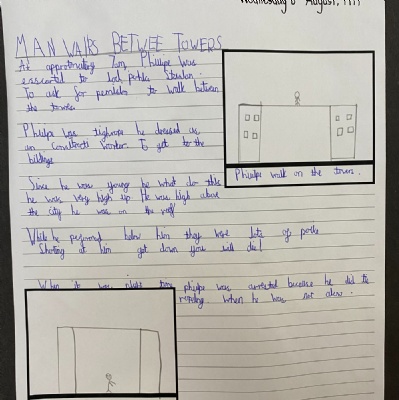 August, 1977
MAN WALKS BETWEE TOWERS
At approximatley 7am, Phillipe was
esscorted to local police Station.
To ask for permission to walk between
the towers
Phillipe was tightrope he dressed as
an worker. To get to the
buildings
Phillipe walk on the towers.
Since he was young he what do this
he was very high up. He was high above
the city he was on the roof
While he performed below him they were lots of people
Shoting at him get down you will die!
When it was night time phillipe was arrested because he did the
when he was not alow.